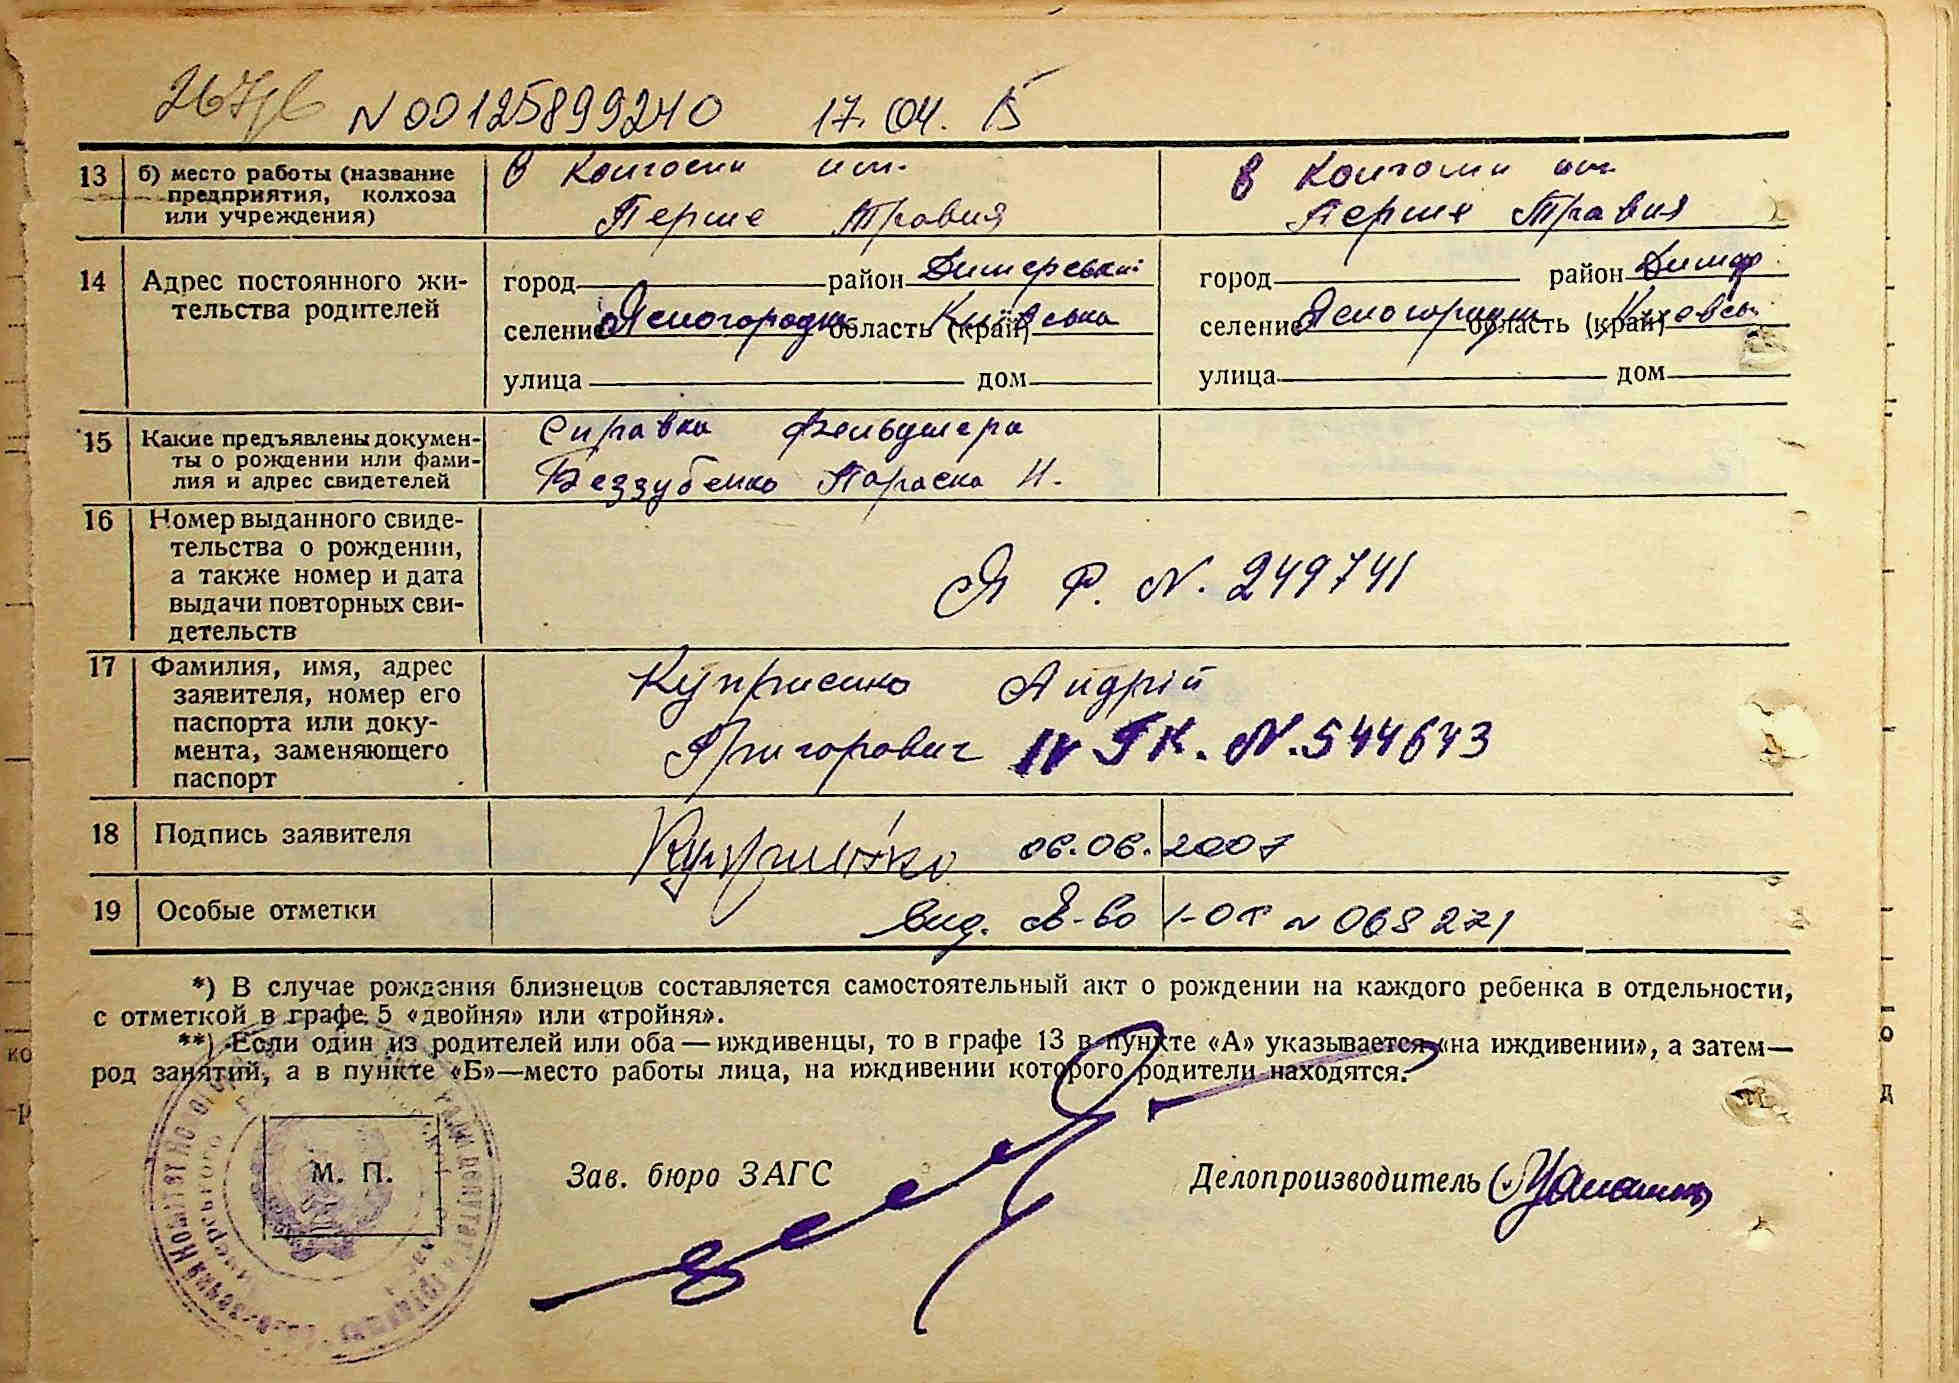 N00125899240 17.04.15
13 б) место работы (название в колгоспи им. в колгоспи им.
предприятия, колхоза Перше Травня Перше Травня
или учреждения)
14 Адрес постоянного жи- город район Димерський город район Димер
тельства родителей селение Ясногородка область (край) Київська селение Ясногородка область (край)
улица дом улица дом
15 Какие предъявлены докумен- Справка фельдшера
ты о рождении или фами- Беззубенко Параска Н.
лия и адрес свидетелей
16 Номер выданного свиде-
тельства о рождении,
а также номер и дата ЯР. N. 249741
выдачи повторных сви-
детельств
17 Фамилия, имя, адрес Куприенко Андрій
заявителя, номер его
паспорта или доку- Григорович IV ГК. N. 544643
мента, заменяющего
паспорт
18 Подпись заявителя 06.06.2007
19 Особые отметки вид. св-во 1-ОК N 068271
*) В случае рождения близнецов составляется самостоятельный акт о рождении на каждого ребенка в отдельности,
с отметкой в графе 5 «двойня» или «тройня».
**) Если один из родителей или оба — иждивенцы, то в графе 13 в пункте «А» указывается «на иждивении», а затем—
род занятий, а в пункте «Б»—место работы лица, на иждивении которого родители находятся.
М. П. Зав. бюро ЗАГС Делопроизводитель